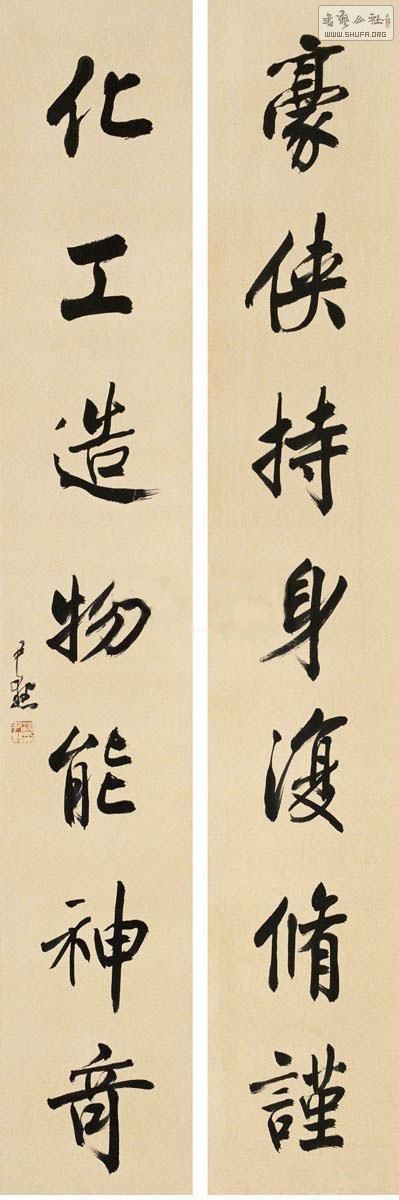 書藝公社
WWW.SHUFA.ORG
豪俠持身復脩謹
化工造物能神竒
尹默